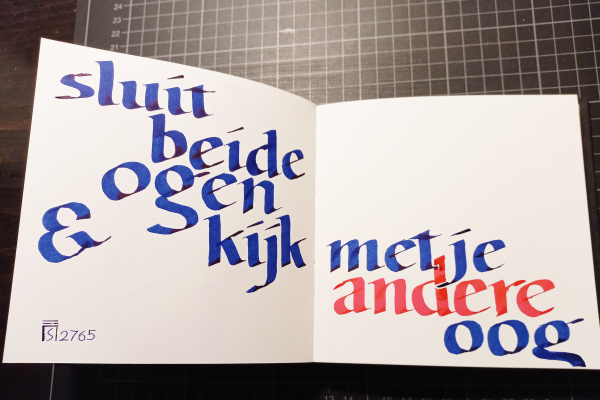 sluit
beide
ogen
& kijk
2765
met je
andere
oog
24
23
22
21
13 14